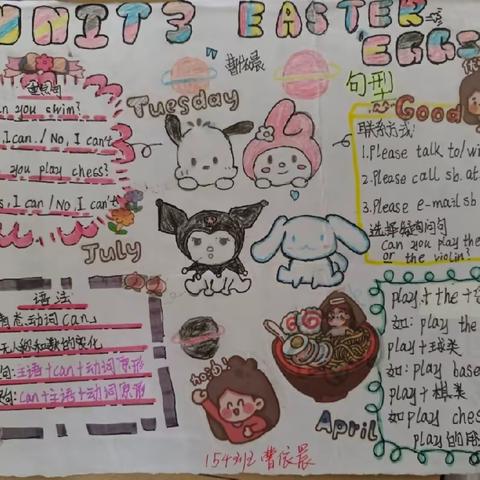 UNIT 3 EASTER
EGGS
曹依晨
重点句
an you swim?
I can. / No, I can't
you play chess?
s, I can / No, I can't
Tuesday
July
句型
Good
1. Please talk to/wri
2. Please call sb. at
3. Please e-mail sb
选择疑问句
can you play the
or the violin?
语法
情态动词can
无人称和数的变化
句:主语+can+动词原形
句:can+主语+动词原形
April
play + the +
如: play the
play + 球类
如: play base
play + 棋类
如 play ches
play的用
154班 曹依晨